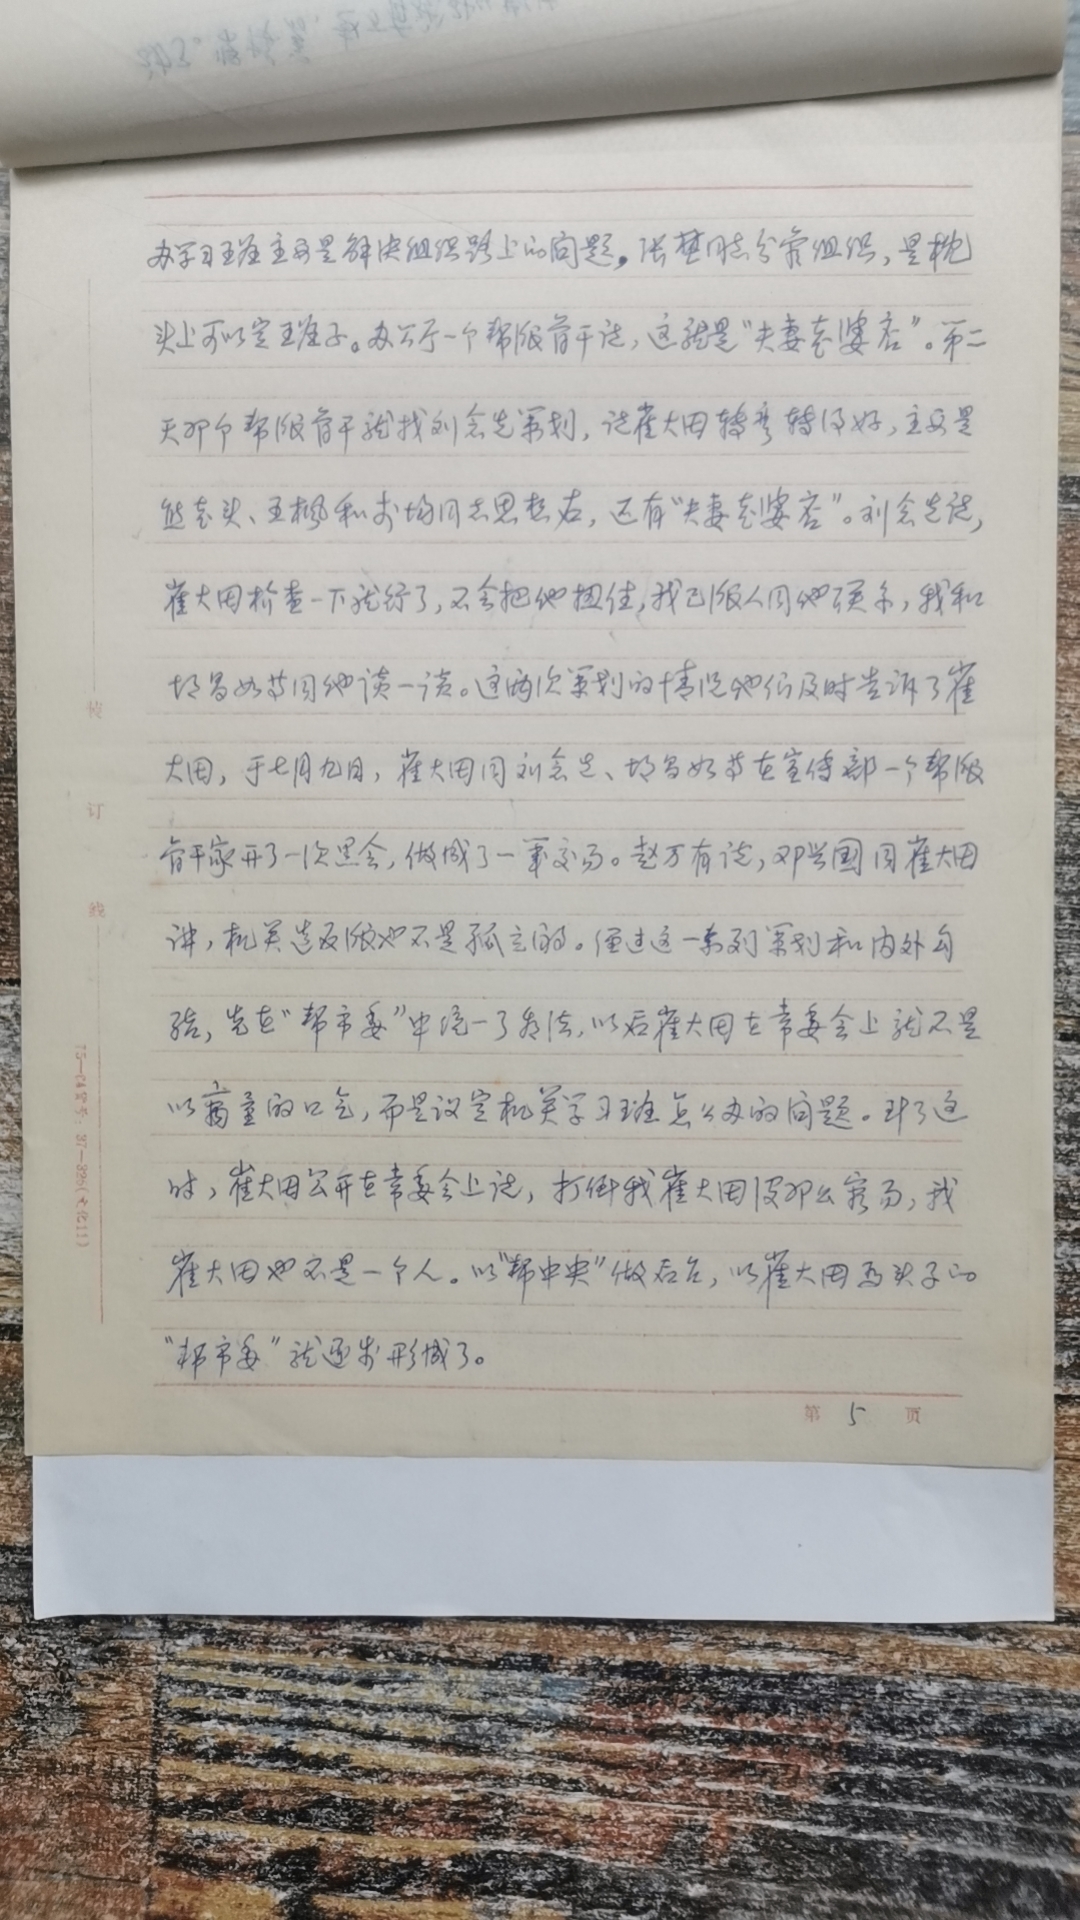 办学习班主要是解决组织路上的问题。张楚同志分管组织，是枕
头上可以定班子。办公厅一个帮派骨干说，这就是“夫妻老婆店”。第二
天那个帮派骨干就找刘会先策划，说崔大田转弯转得好，主要是
熊老头、王枫和李均同志思想右，还有“夫妻老婆店”。刘会先说，
崔大田检查一下就行了，不会把他揪住，我已派人同他联系，我和
胡昌如等同他谈一谈。这两次策划的情况他们及时告诉了崔
大田，于七月九日，崔大田同刘会先、胡昌如等在宣传部一个帮派
骨干家开了一次黑会，做成了一笔交易。赵万有说，邓兴国同崔大田
讲，机关造反派也不是孤立的。经过这一系列策划和内外勾
结，先在“帮市委”中统一了想法，以后崔大田在常委会上就不是
以商量的口气，而是议定机关学习班怎么办的问题。到了这
时，崔大田公开在常委会上说，打倒我崔大田没那么容易，我
崔大田也不是一个人。以“帮中央”做后台，以崔大田为头子的
“帮市委”就逐步形成了。
装
订
线
第 5 页